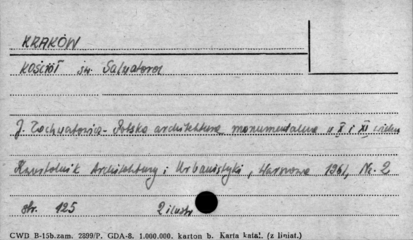 KRAKÓW
KOŚCIÓŁ św Salvatora
J. Zachwatowicz - Polska architektura monumentalna w X i XI wieku
Kwartalnik Architektury i Urbanistyki, Warszawa 1961, Nr. 2
str. 125 2 ilustr
CWD B-15b.zam. 2899/P. GDA-8. 1.000.000. karton b. Karta katal. (z liniat.)